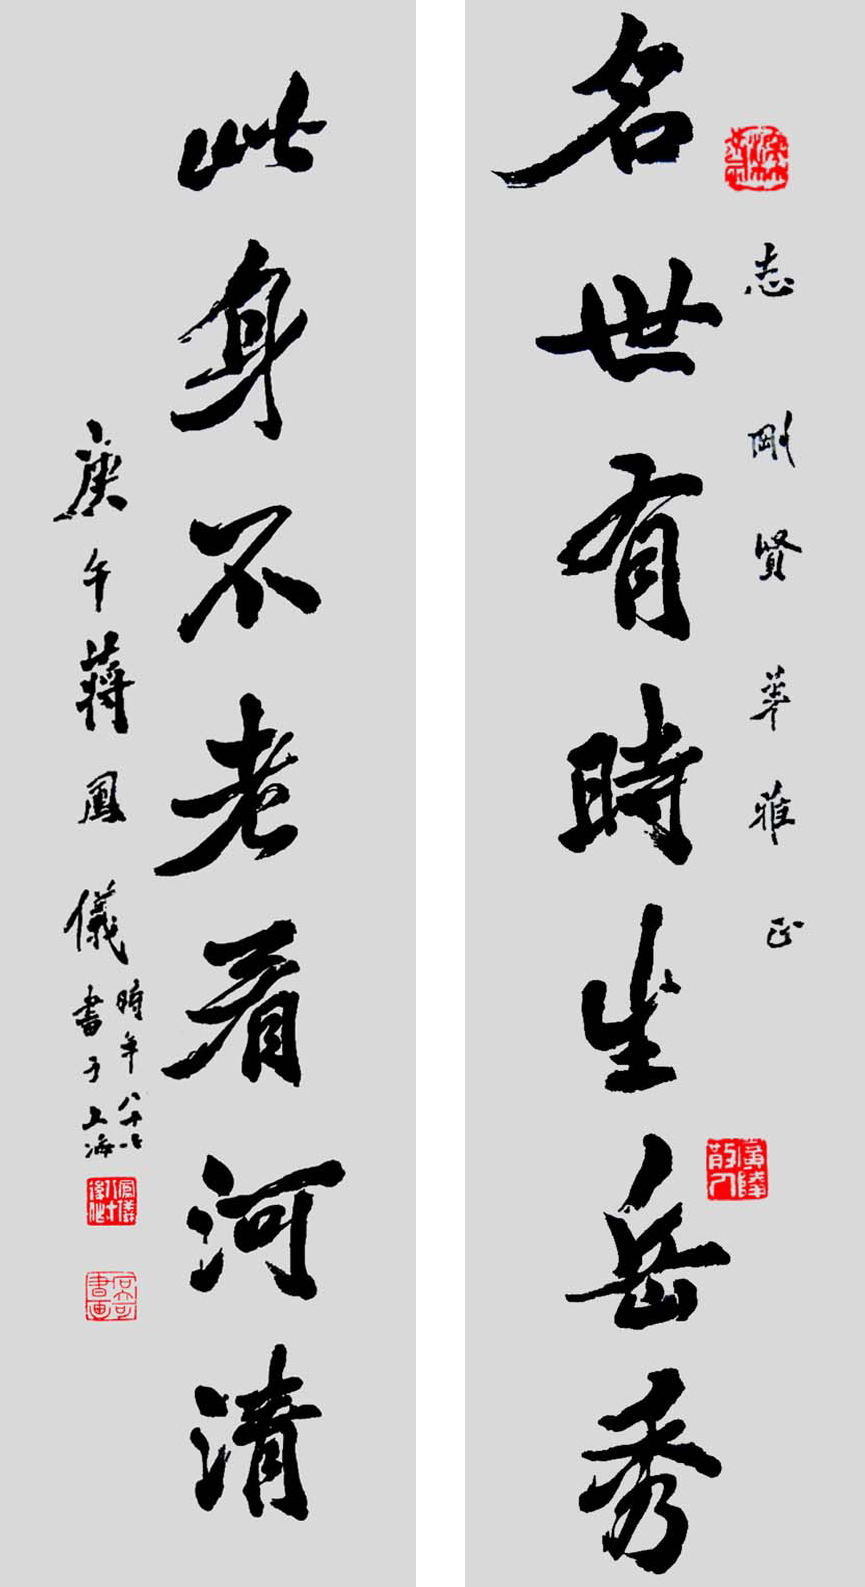 志剛賢華雅正
名世有時生岳秀
此身不老看河清
庚午蔣鳳儀
時年八十七
書于上海